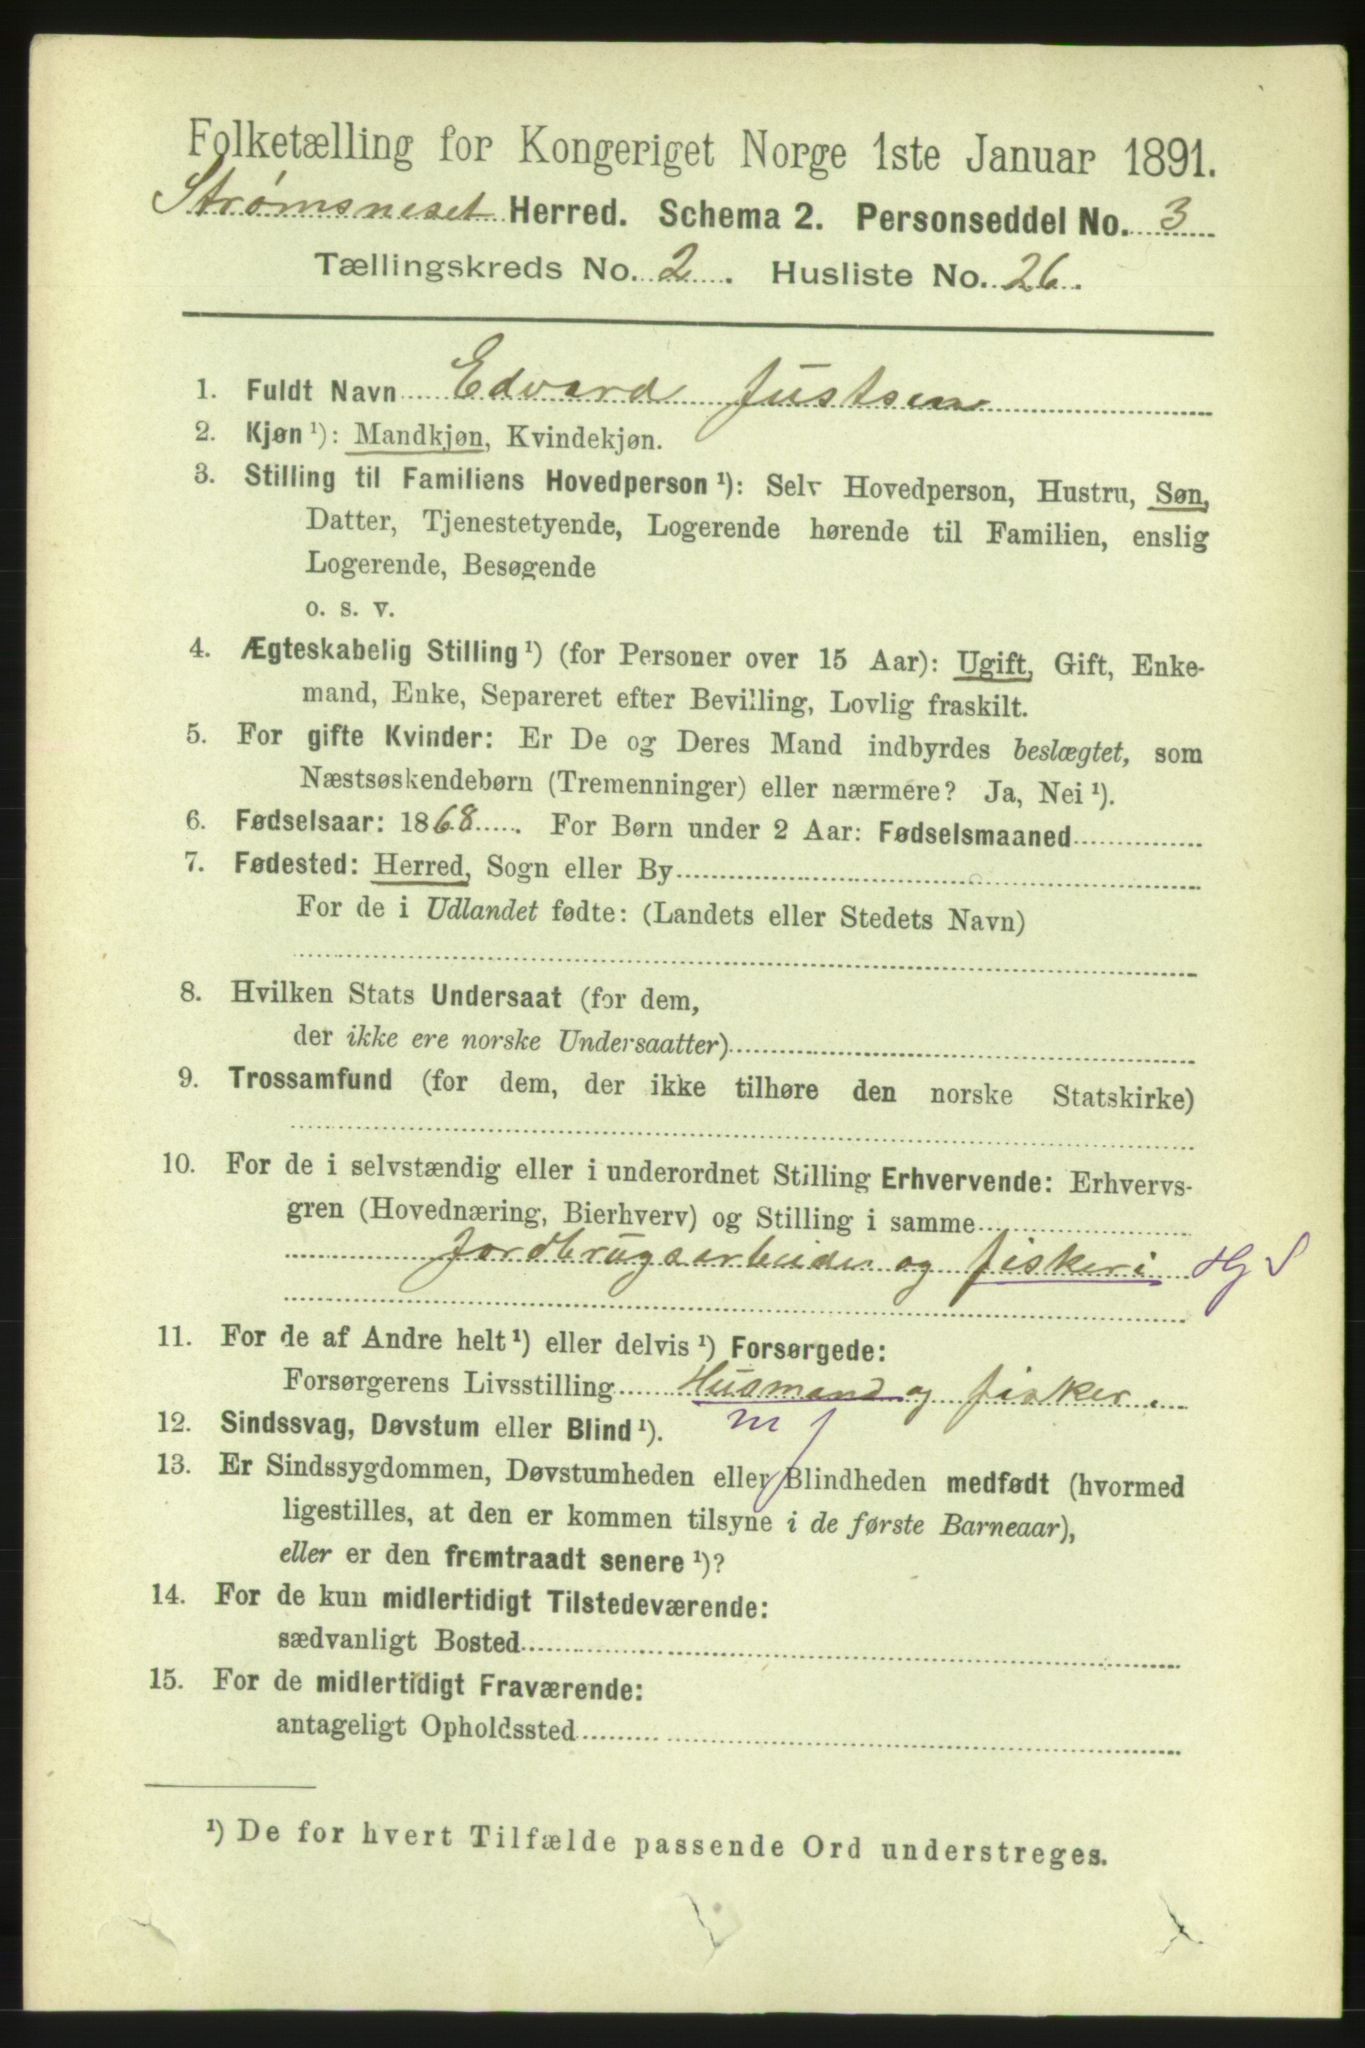 Folketælling for Kongeriget Norge 1ste Januar 1891.
Strømsneset Herred. Schema 2. Personseddel No. 3
Tællingskreds No. 2. Husliste No. 26.
1. Fuldt Navn Edvard Justsen
2. Kjøn¹): Mandkjøn, Kvindekjøn.
3. Stilling til Familiens Hovedperson¹): Selv Hovedperson, Hustru, Søn,
Datter, Tjenestetyende, Logerende hørende til Familien, enslig
Logerende, Besøgende
o. s. v.
4. Ægteskabelig Stilling¹) (for Personer over 15 Aar): Ugift, Gift, Enke-
mand, Enke, Separeret efter Bevilling, Lovlig fraskilt.
5. For gifte Kvinder: Er De og Deres Mand indbyrdes beslægtet, som
Næstsøskendebørn (Tremenninger) eller nærmere? Ja, Nei¹).
6. Fødselsaar: 1868. For Børn under 2 Aar: Fødselsmaaned
7. Fødested: Herred, Sogn eller By
For de i Udlandet fødte: (Landets eller Stedets Navn)
8. Hvilken Stats Undersaat (for dem,
der ikke ere norske Undersaatter)
9. Trossamfund (for dem, der ikke tilhøre den norske Statskirke)
10. For de i selvstændig eller i underordnet Stilling Erhvervende: Erhvervs-
gren (Hovednæring, Bierhverv) og Stilling i samme
Jordbrugsarbeider og fiskeri
11. For de af Andre helt¹) eller delvis¹) Forsørgede:
Forsørgerens Livsstilling Husmand og fisker.
12. Sindssvag, Døvstum eller Blind¹). m f
13. Er Sindssygdommen, Døvstumheden eller Blindheden medfødt (hvormed
ligestilles, at den er kommen tilsyne i de første Barneaar),
eller er den fremtraadt senere¹)?
14. For de kun midlertidigt Tilstedeværende:
sædvanligt Bosted
15. For de midlertidigt Fraværende:
antageligt Opholdssted
¹) De for hvert Tilfælde passende Ord understreges.